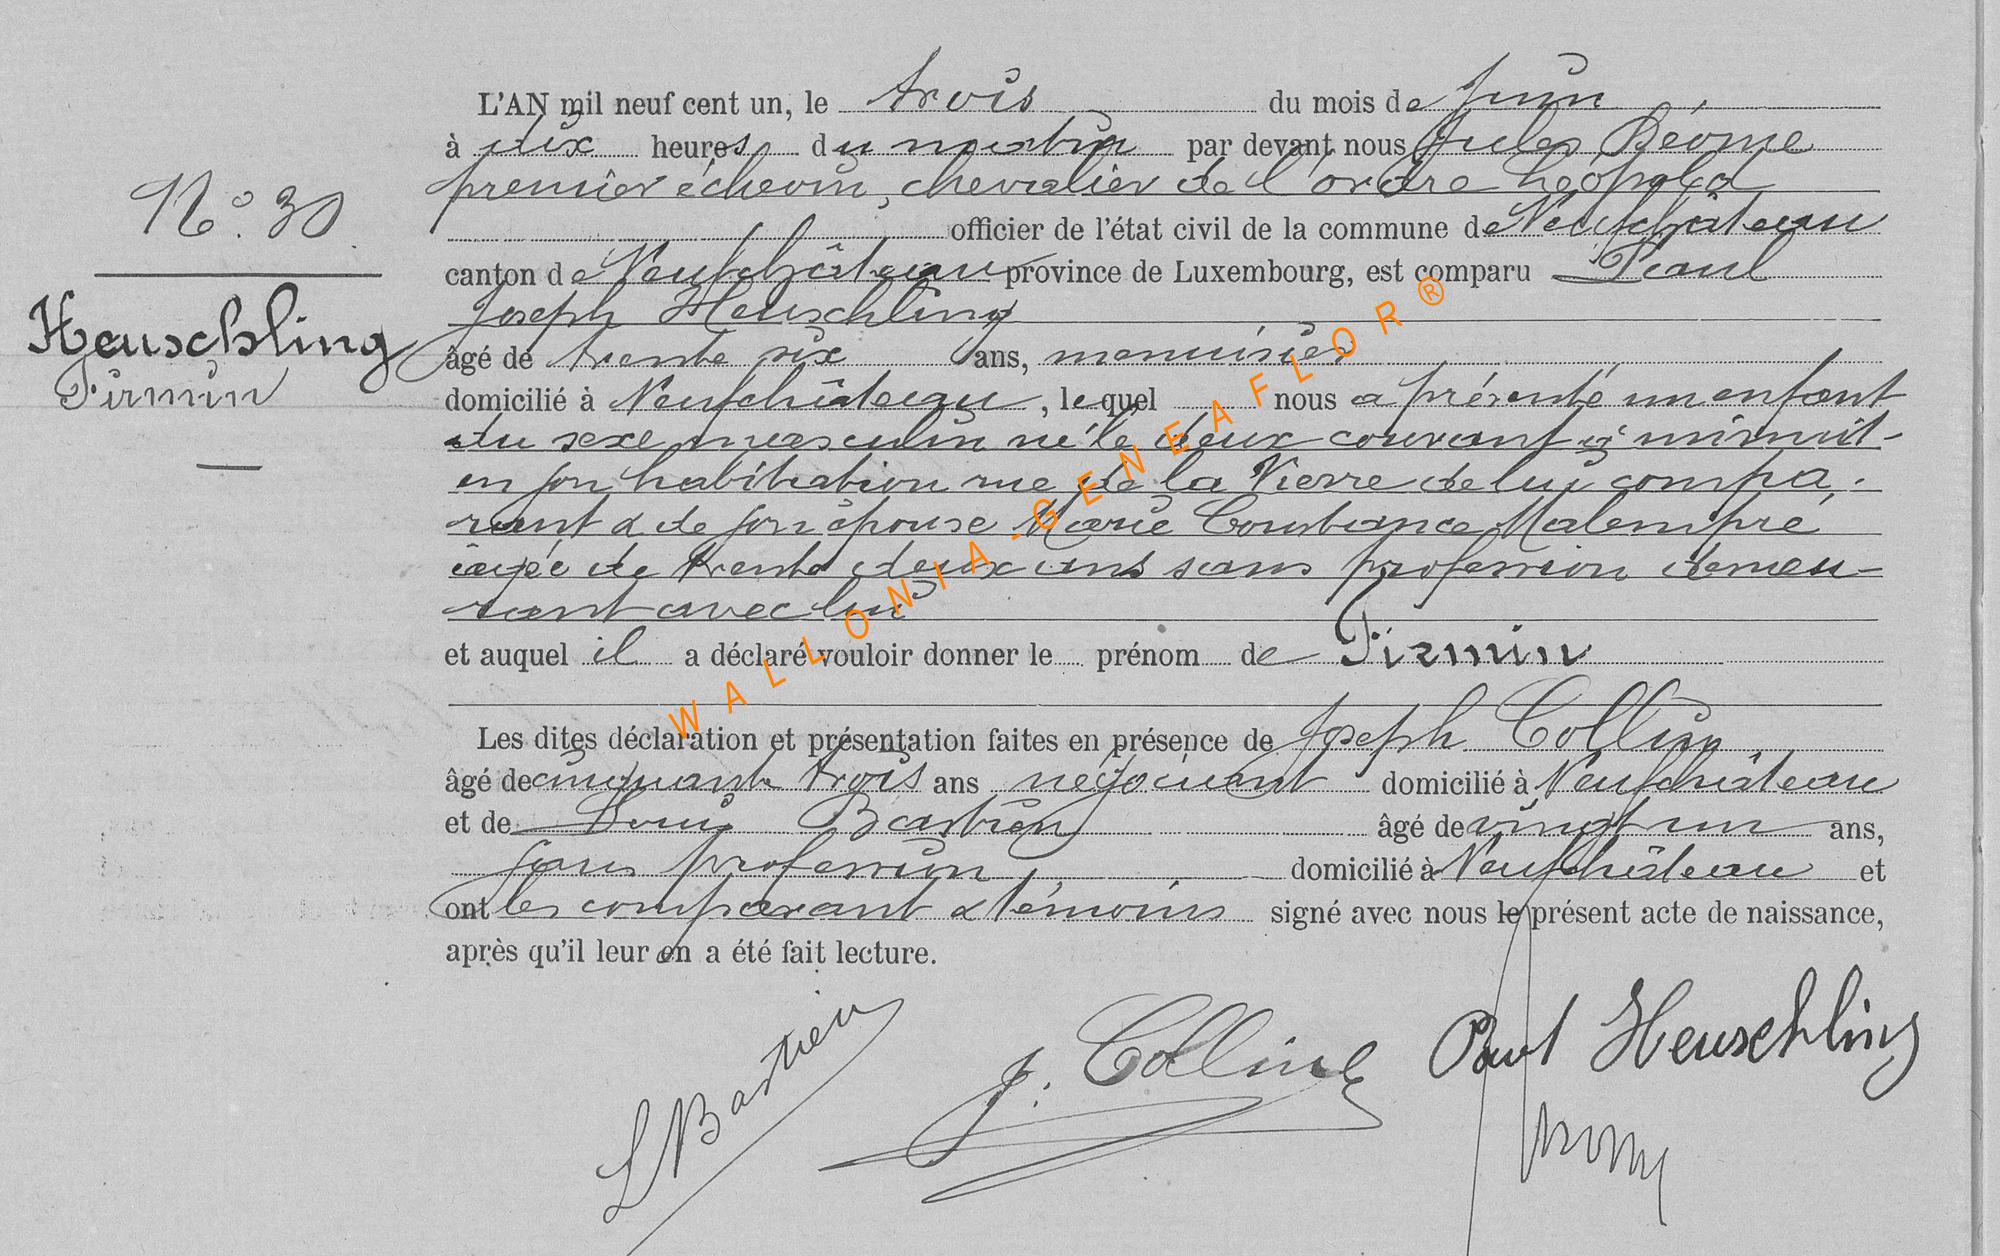 N° 30
Heuschling
Firmin
L'AN mil neuf cent un, le trois du mois de juin
à dix heures du matin par devant nous Jules Déome
premier échevin, chevalier de l'ordre Léopold
officier de l'état civil de la commune de Neufchâteau
canton de Neufchâteau province de Luxembourg, est comparu Paul
Joseph Heuschling
âgé de trente six ans, menuisier
domicilié à Neufchâteau, lequel nous a présenté un enfant
du sexe masculin né le deux courant à minuit
en son habitation rue de la Vierre de lui compa-
rant & de son épouse Marie Constance Malempré
âgée de trente deux ans sans profession demeu-
rant avec lui
et auquel il a déclaré vouloir donner le prénom de Firmin
Les dites déclaration et présentation faites en présence de Joseph Collin
âgé de cinquante trois ans négociant domicilié à Neufchâteau
et de Louis Bastien âgé de vingt un ans,
sans profession domicilié à Neufchâteau et
ont les comparant & témoins signé avec nous le présent acte de naissance,
après qu'il leur en a été fait lecture.
L Bastien
J. Collin
Paul Heuschling
WALLONIA-GENEAFLOR®